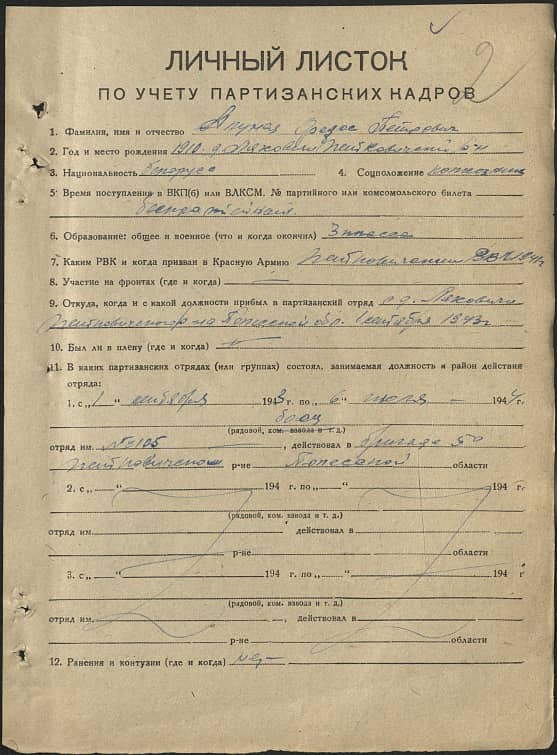 2
ЛИЧНЫЙ ЛИСТОК
ПО УЧЕТУ ПАРТИЗАНСКИХ КАДРОВ
1. Фамилия, имя и отчество Петрович
2. Год и место рождения 1910 д. Ляховичи р-н
3. Национальность белорус 4. Соцположение колхозник
5. Время поступления в ВКП(б) или ВЛКСМ, № партийного или комсомольского билета
беспартийная
6. Образование: общее и военное (что и когда окончил) 3 класса
7. Каким РВК и когда призван в Красную Армию РВК 1941 г
8. Участие на фронтах (где и когда) —
9. Откуда, когда и с какой должности прибыл в партизанский отряд с д. Ляховичи
обл. 1 сентября 1943 г
10. Был ли в плену (где и когда)
11. В каких партизанских отрядах (или группах) состоял, занимаемая должность и район действия
отряда:
1. с „1“ сентября 1943 г. по „6“ июля 1944 г.
боец
(рядовой, ком. взвода и т. д.)
отряд им. №105, действовал в бригаде 50
р-не Полесской области
2. с „ “ 194 г. по „ “ 194 г
(рядовой, ком. взвода и т. д.)
отряд им. действовал в
р-не области
3. с „ “ 194 г. по „ “ 194 г
(рядовой, ком. взвода и т. д.)
отряд им. , действовал в
р-не области
12. Ранения и контузии (где и когда) нет